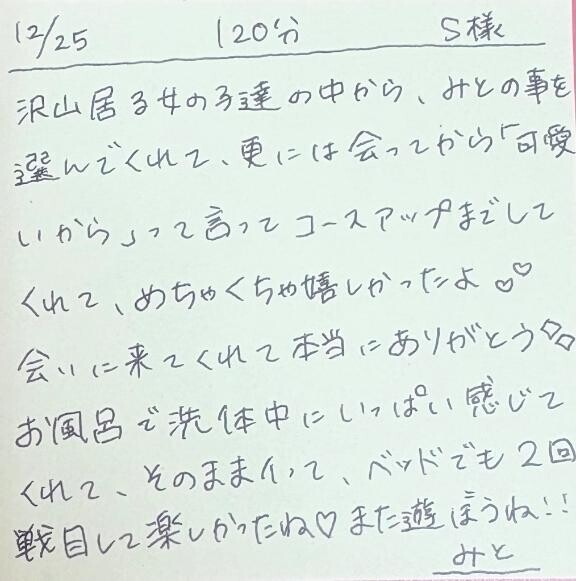 12/25 120分 S様
沢山居る女の子達の中から、みとの事を
選んでくれて、更には会ってから「可愛
いから」って言ってコースアップまでして
くれて、めちゃくちゃ嬉しかったよ♡♡
会いに来てくれて本当にありがとう
お風呂で洗体中にいっぱい感じて
くれて、そのままイって、ベッドでも2回
戦目して楽しかったね♡また遊ぼうね!!
みと